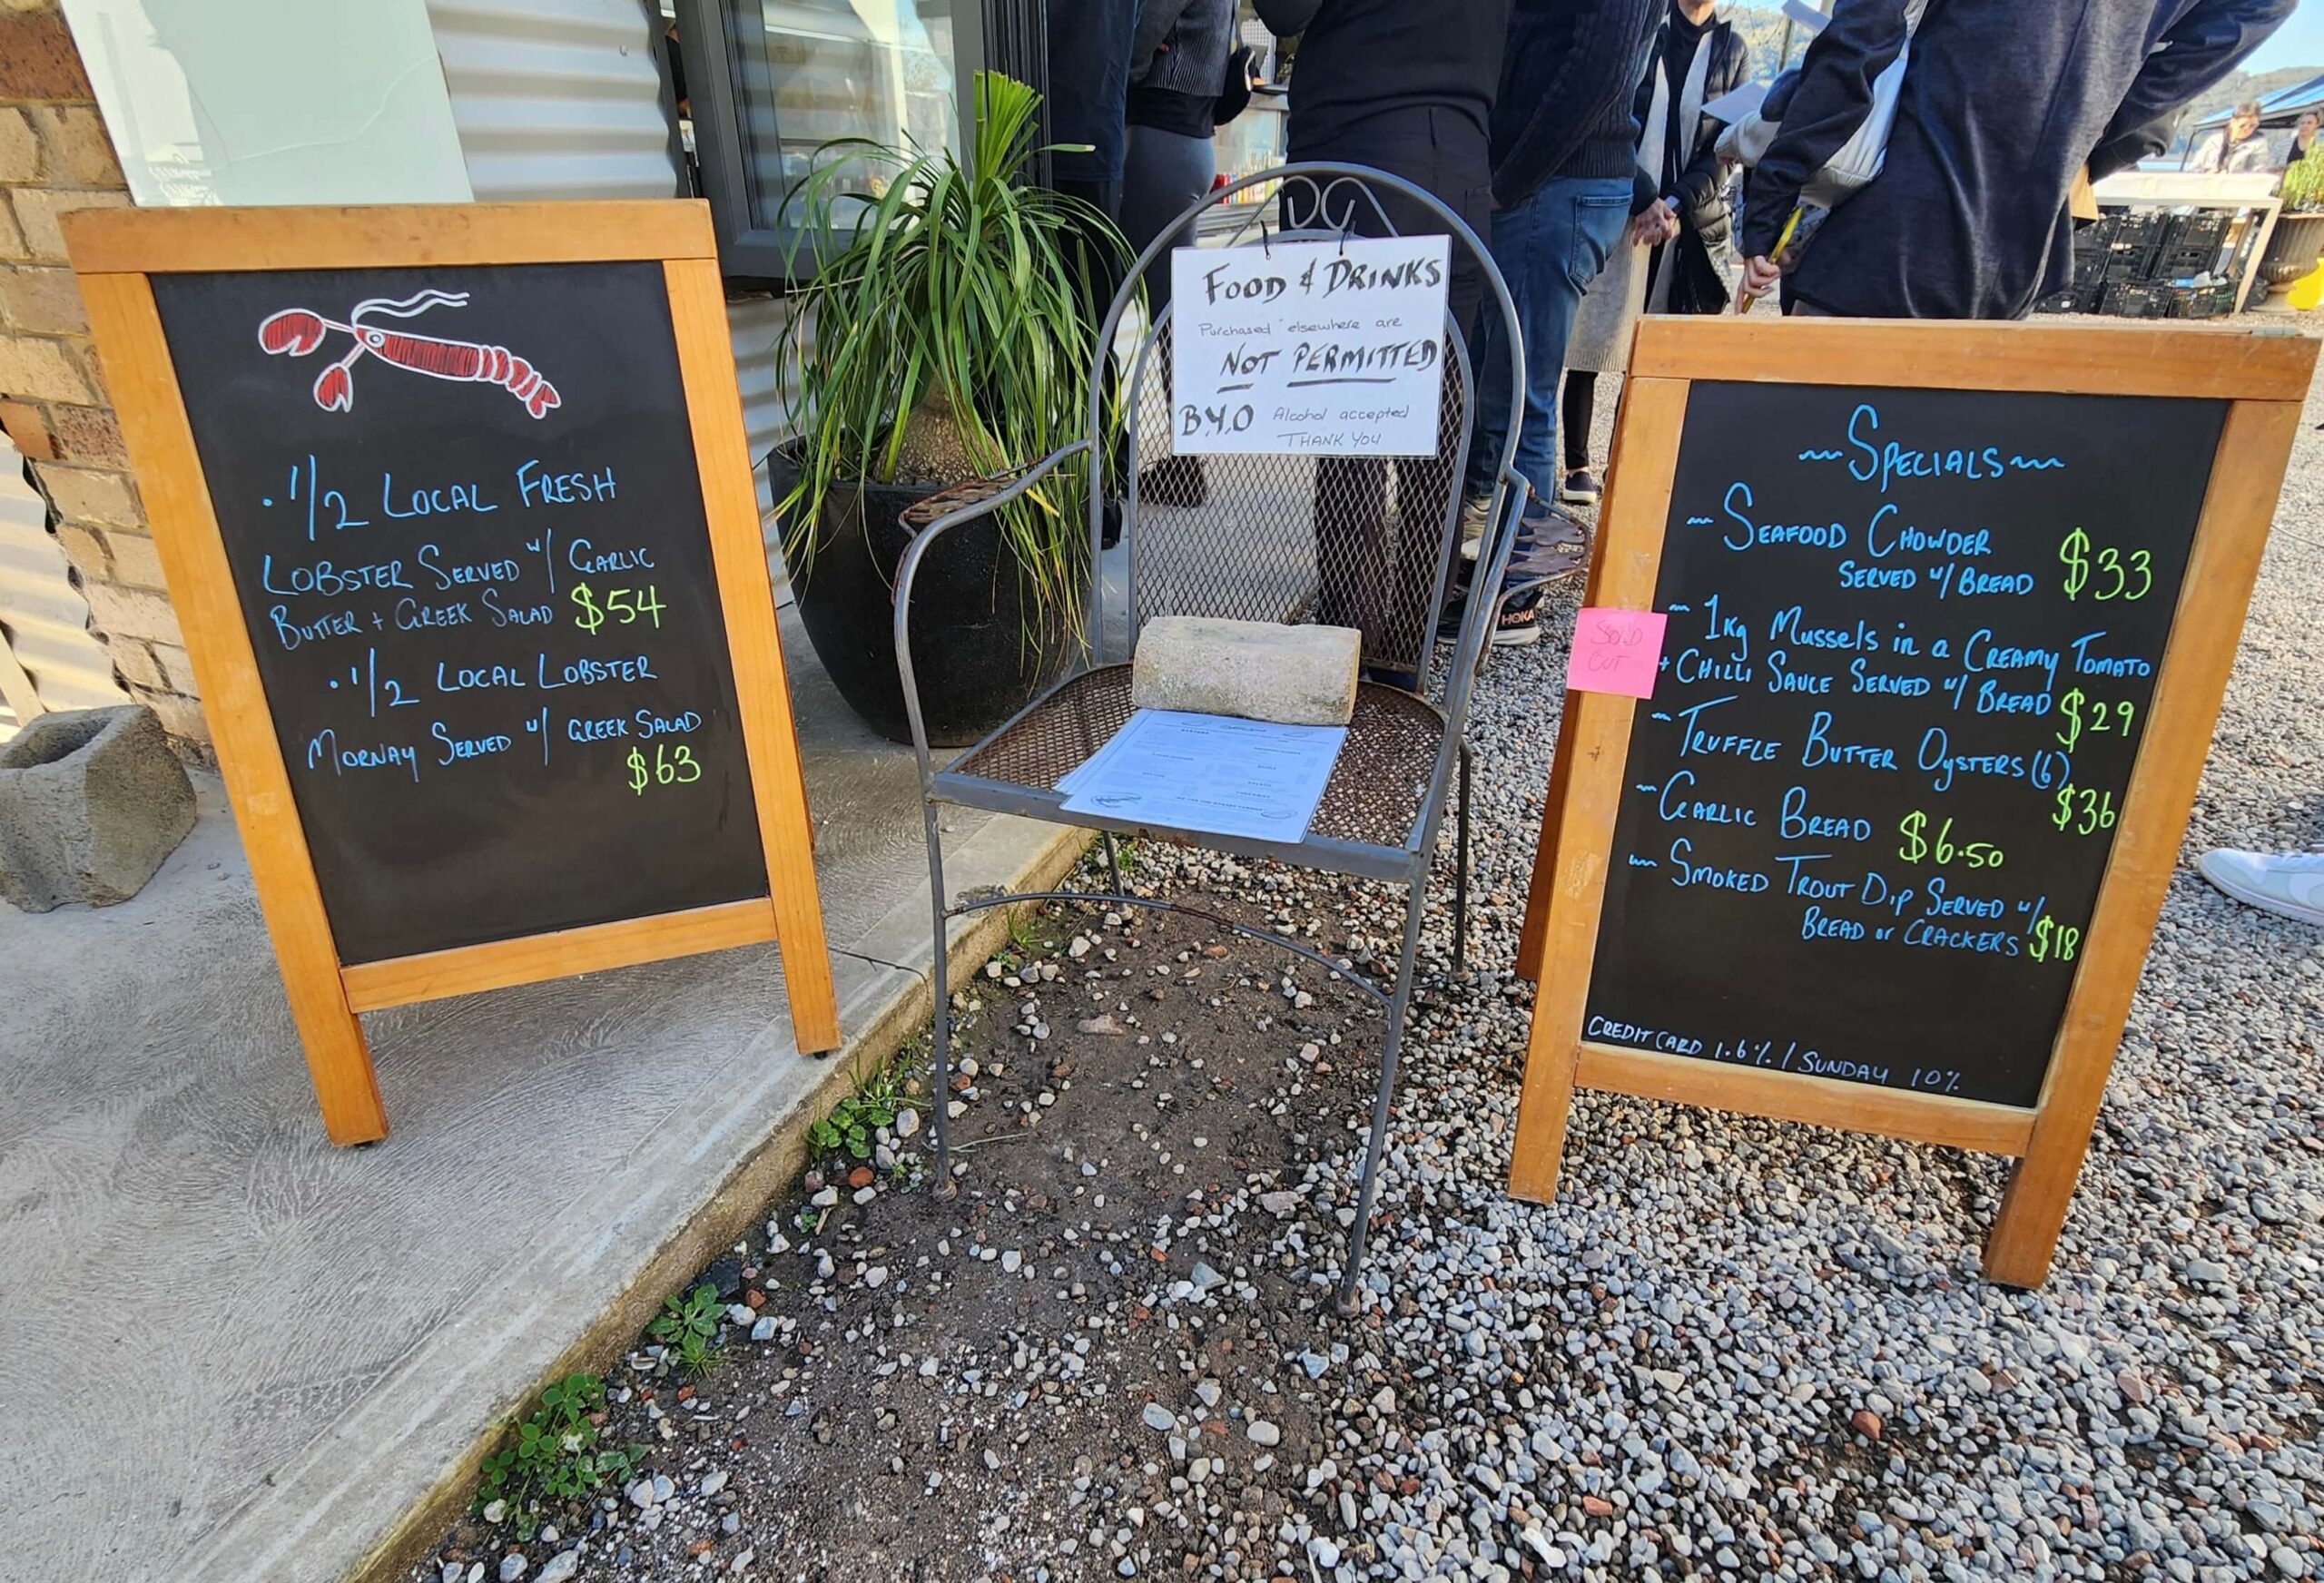 · 1/2 LOCAL FRESH
LOBSTER SERVED w/ GARLIC
BUTTER + GREEK SALAD $54
· 1/2 LOCAL LOBSTER
MORNAY SERVED w/ GREEK SALAD
$63
FOOD & DRINKS
Purchased elsewhere are
NOT PERMITTED
B.Y.O Alcohol accepted
THANK YOU
HOKA
~SPECIALS~
~ SEAFOOD CHOWDER
SERVED w/ BREAD $33
SOLD
OUT
~ 1Kg MUSSELS in a CREAMY TOMATO
+ CHILLI SAUCE SERVED w/ BREAD $29
~ TRUFFLE BUTTER OYSTERS (6)
$36
~ GARLIC BREAD $6.50
~ SMOKED TROUT DIP SERVED w/
BREAD or CRACKERS $18
CREDIT CARD 1.6% / SUNDAY 10%